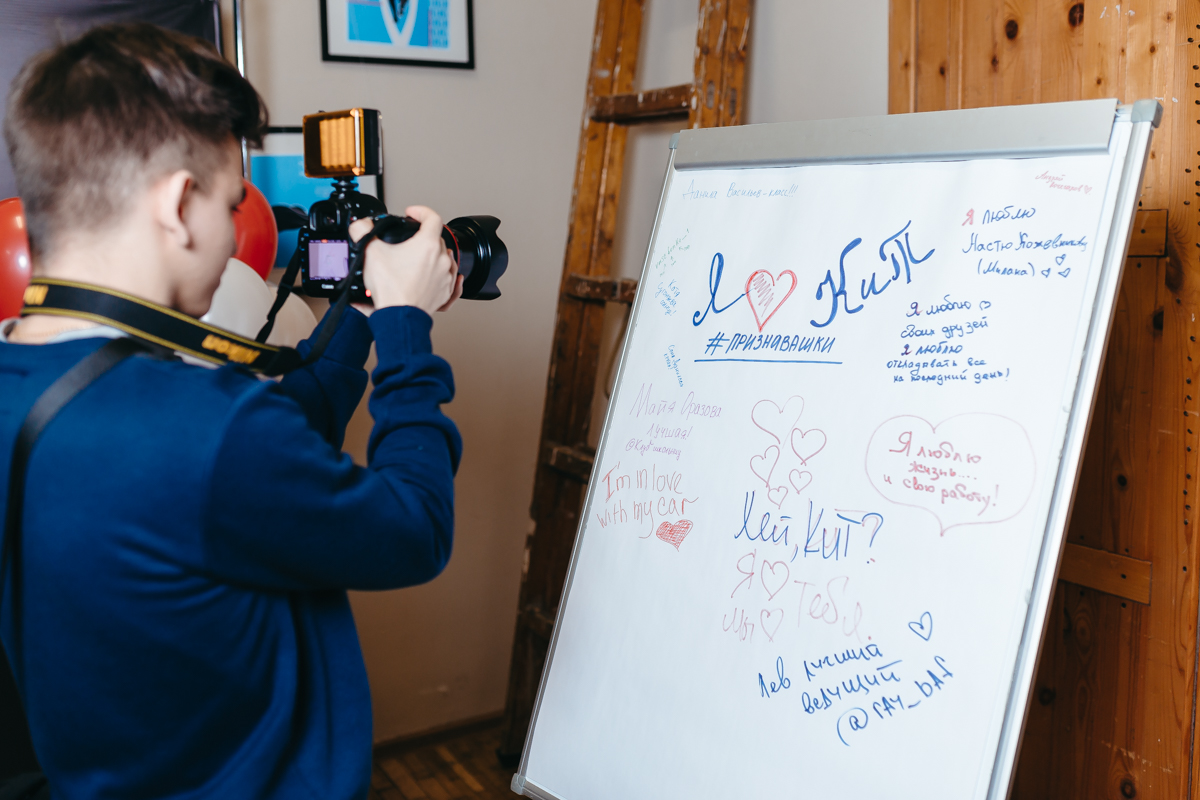 Данила Васильев - класс!!!
Я люблю
Настю Кожевникову
(Милана) ♡ ♡ ♡
Я ♡ КиТ
#ПРИЗНАВАШКИ
Я люблю ♡
своих друзей
Я люблю
откладывать все
на последний день!
Майя Оразова
Лучшая!
I'm in love
with my car
Я люблю
жизнь....
и свою работу!
Хей, КИТ?
Я ♡ Тебя
Мы ♡
Лев лучший
ведущий
Nikon